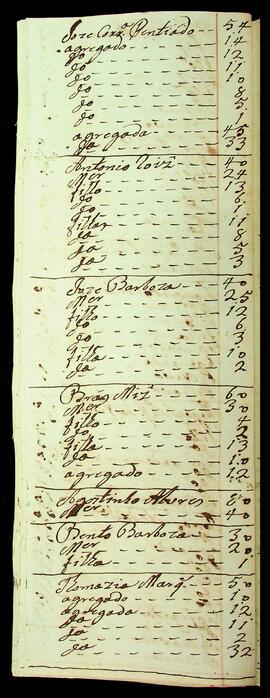 Joze Corr.ª Penteado 54
agregado 14
do 12
do 11
do 10
do 8
do 5
do 1
agregada 45
da 33
Antonio 40
Mer 24
filho 13
do 6
do 1
filha 11
da 8
da 5
da 3
Joze Barboza 40
Mer 25
filho 12
do 6
do 3
do
filha 10
da 2
Bras Miz 60
Mer 30
filho 4
do
filha 13
da 10
agregado 12
Agostinho Alvres 80
Mer 40
Bento Barboza 30
Mer 20
filha 1
Romazia Marq. 50
agregado 10
agregada 12
da 11
da 2
da 32